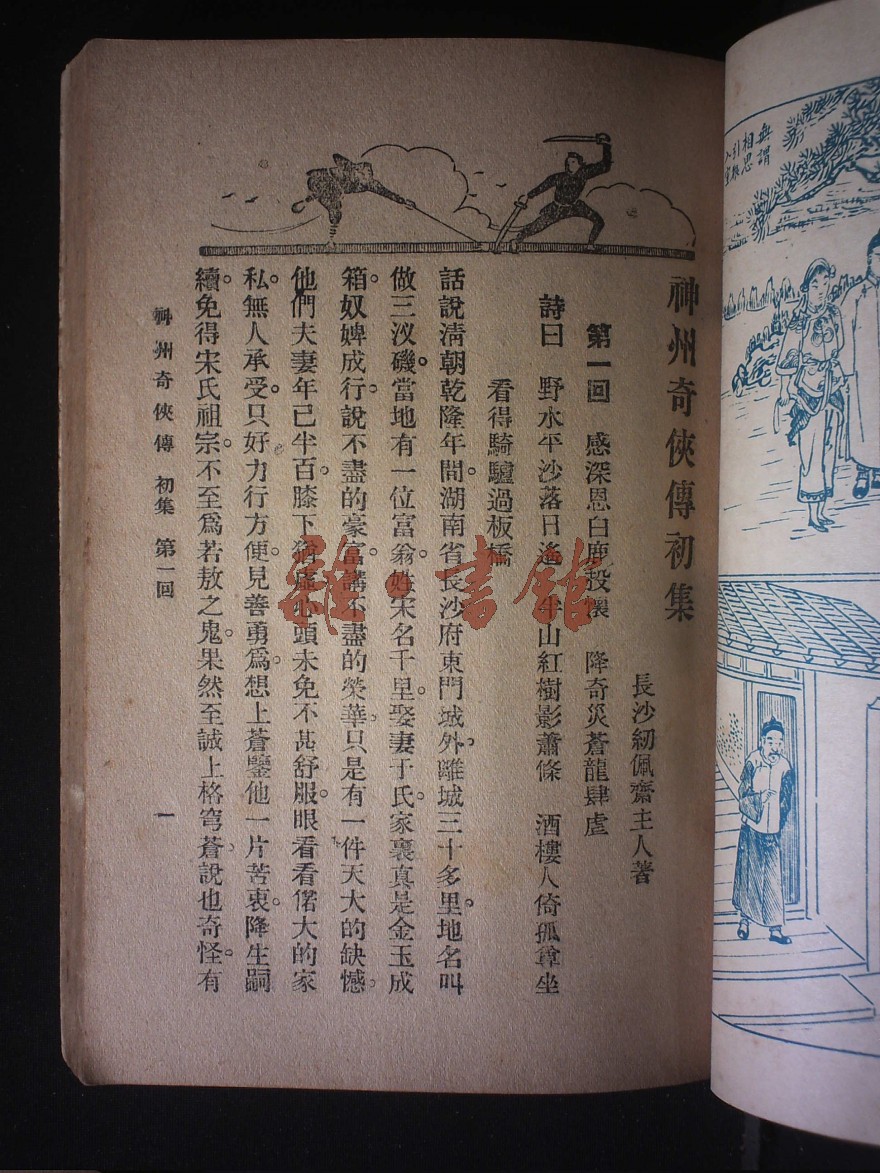 神州奇俠傳初集
長沙紉佩齋主人著
第一回　感深恩白鹿投懷　降奇災蒼龍肆虐
詩曰　野水平沙落日遙　半山紅樹影蕭條　酒樓人倚孤尊坐
看得騎驢過板橋
話說淸朝乾隆年間。湖南省長沙府東門城外。離城三十多里。地名叫
做三汊磯。當地有一位富翁。姓宋名千里。娶妻于氏。家裏真是金玉成
箱。奴婢成行。說不盡的豪富。講不盡的榮華。只是有一件天大的缺憾。
他們夫妻年已半百。膝下猶虛。心頭未免不甚舒服。眼看看偌大的家
私。無人承受。只好力行方便。見善勇爲。想上蒼鑒他一片苦衷。降生嗣
續。免得宋氏祖宗。不至爲若敖之鬼。果然至誠上格穹蒼。說也奇怪。有
神州奇俠傳　初集　第一回
一
無謂
相思
引
雜·書館